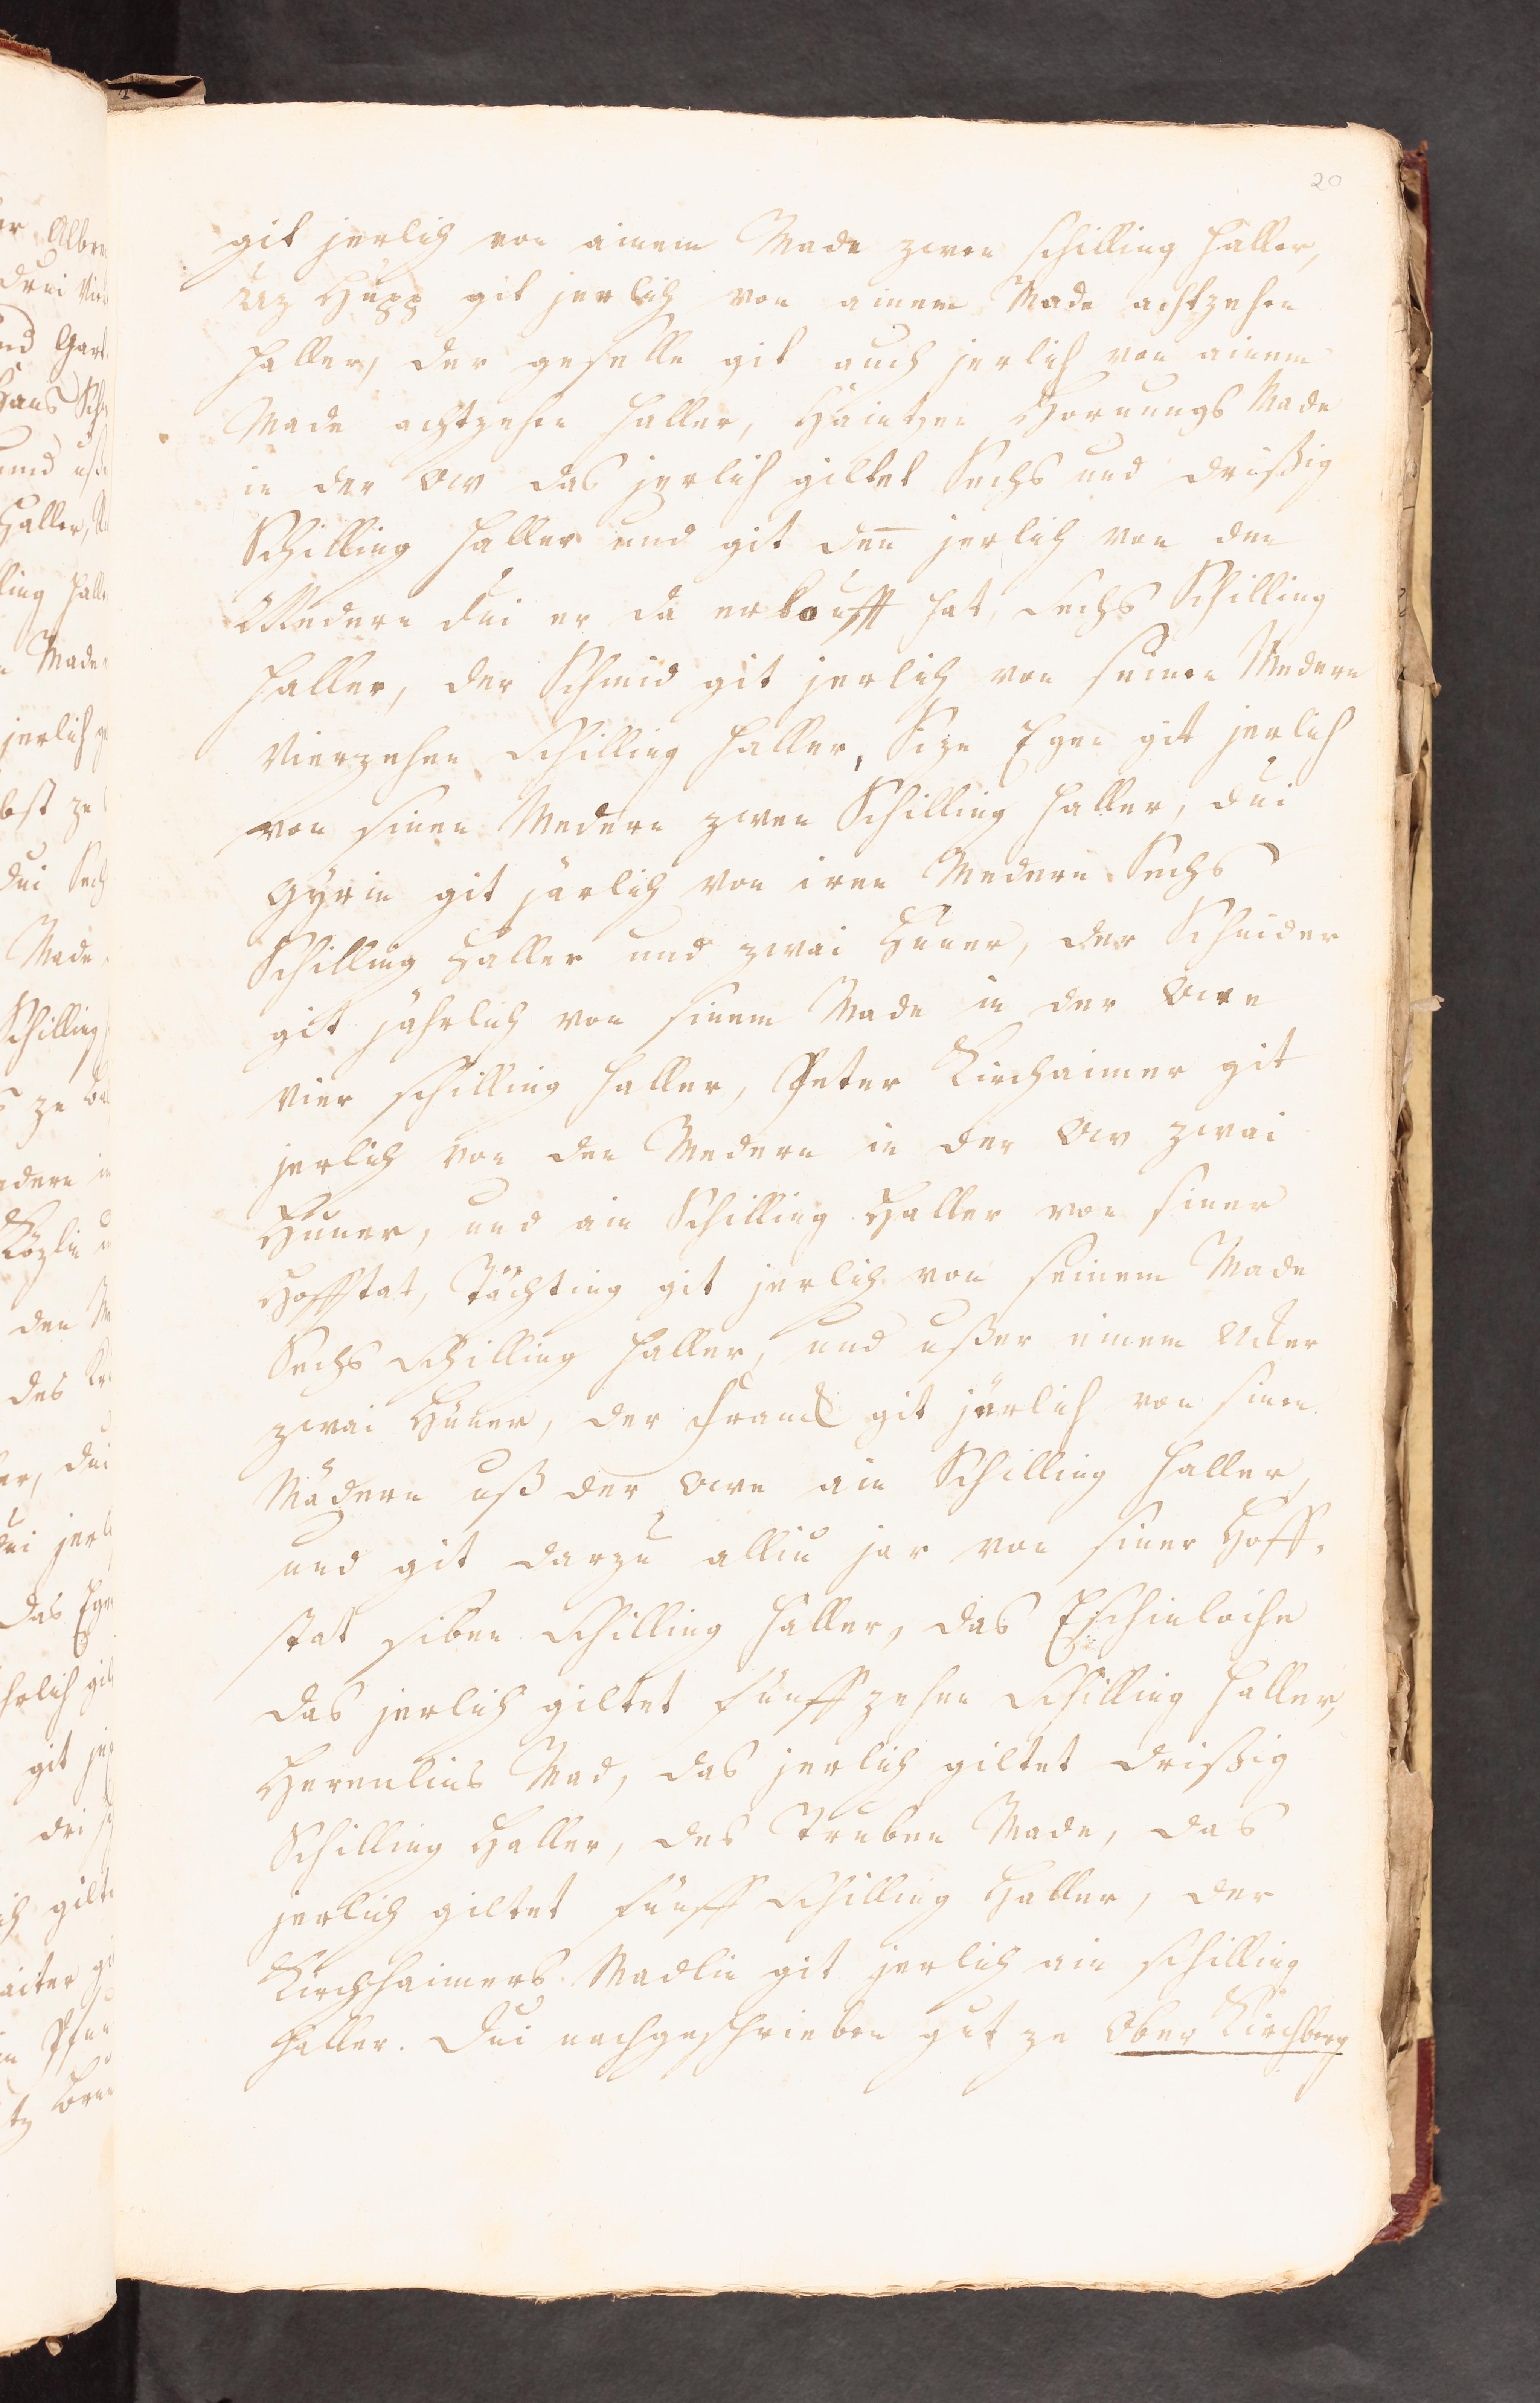 20
git jerlich von ainem Made zwen schilling haller,
Uz Hupp git jerlich von ainem Made achtzehen
haller, der geselle git auch jerlich von ainem
Made achtzehen haller, Haintzen Hornungs Made
in der Ow das jerlich giltet Sechs und drißig
Schilling haller und git den̄ jerlich von den
Medern dui er da erkoufft hat, sechs Schilling
haller, der Schmid git jerlich von seinen Medern
vierzehen Schilling haller, Size Egen git jerlich
von sinen Medern zwen Schilling haller, dui
Gyrin git järlich von iren Medern Sechs
Schilling Haller und zwai Huner, der Schnider
git jährlich von sinem Made in der Owe
vier schilling haller, Peter Kirchaimer git
jerlich von den Medern in der Ow zwai
Huner, und ain Schilling Haller von siner
Hofftat, Tächting git jerlich von seinem Made
Sechs Schilling haller, und ußer einem Acker
zwai Hüner, der Franck git järlich von sinen
Mädern uß der Owe ain Schilling haller,
und git darzu alliu jar von siner Hoff-
stat siben Schilling haller, das Eschinloche
das jerlich giltet funffzehen Schilling haller,
Herenlins Mad, das jerlich giltet drißig
Schilling Haller, des Truben Made, das
jerlich giltet funff Schilling Haller, der
Kirchhaimers Madlin git jerlich ain schilling
haller. Dui nachgeschrieben gut ze Ober Kirchberg